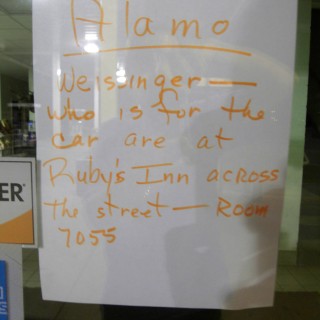 Alamo
Weissinger —
who is for the
car are at
Ruby's Inn across
the street — Room
7055
ER